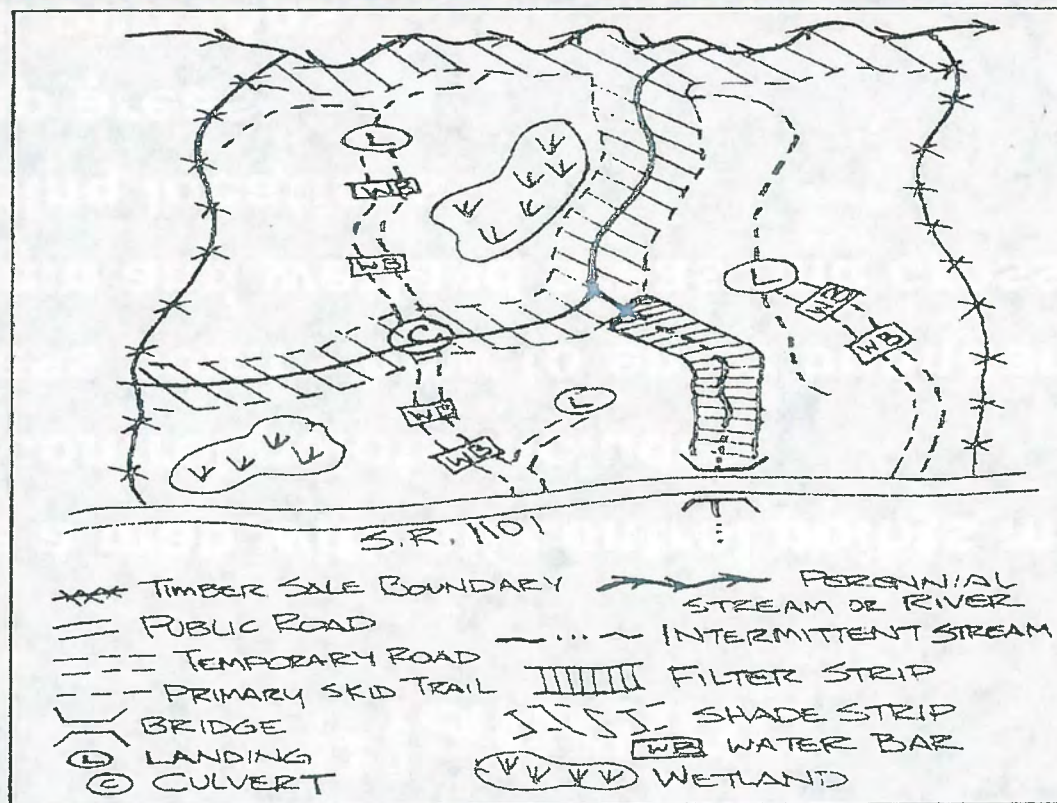 L
WB
WB
C
L
WB
WB
L
WB
WB
S.R. 1101
TIMBER SALE BOUNDARY
PUBLIC ROAD
TEMPORARY ROAD
PRIMARY SKID TRAIL
BRIDGE
L LANDING
C CULVERT
PERENNIAL
STREAM OR RIVER
INTERMITTENT STREAM
FILTER STRIP
SHADE STRIP
WB WATER BAR
WETLAND